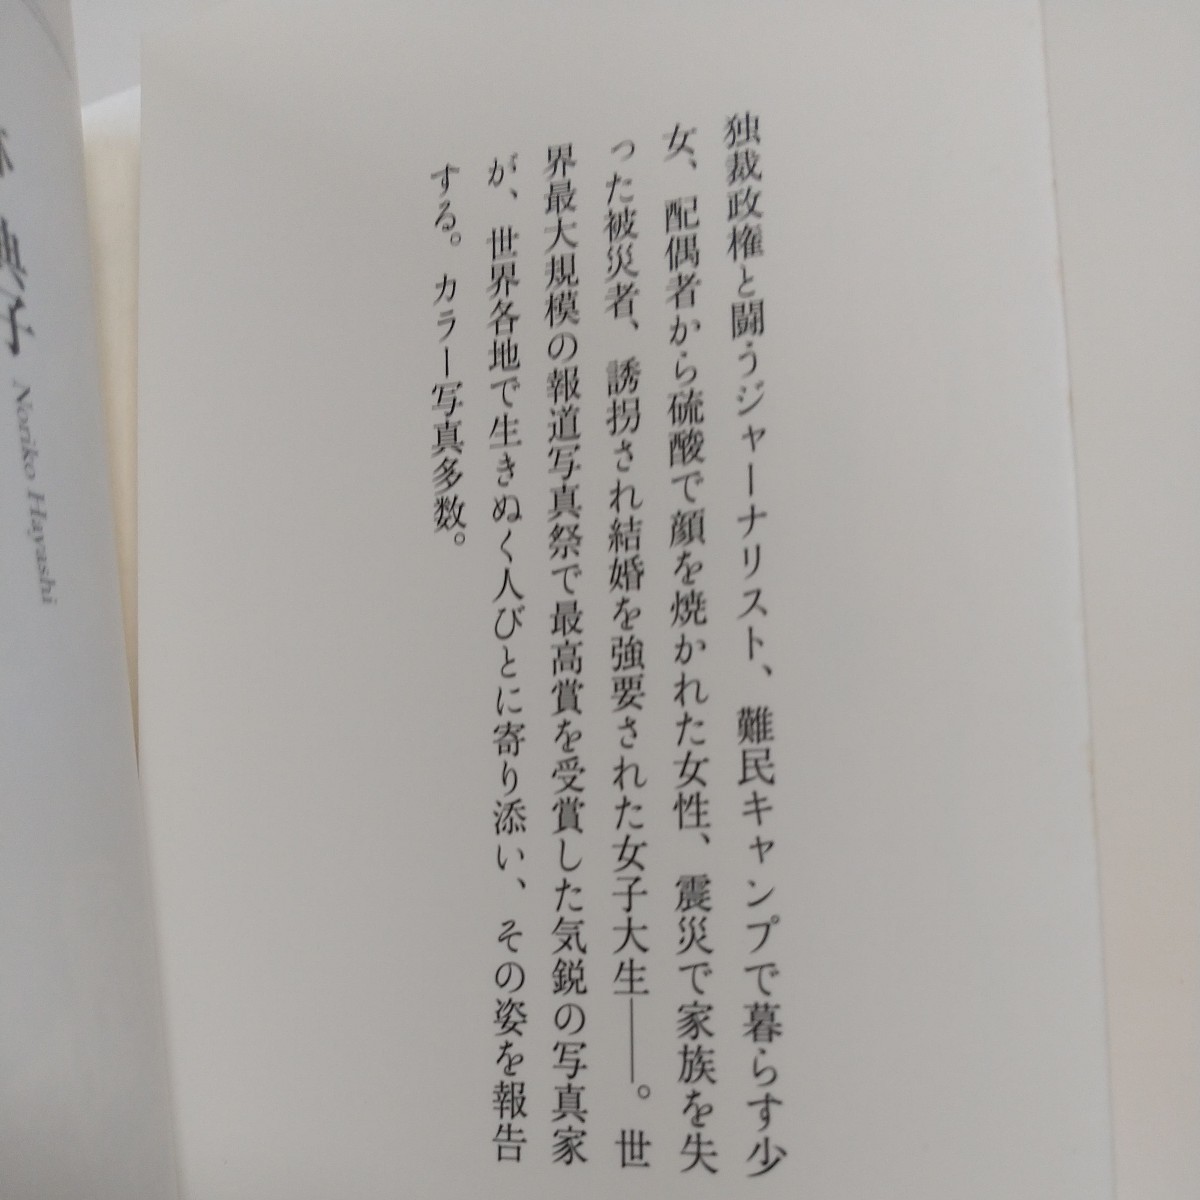 独裁政権と闘うジャーナリスト、難民キャンプで暮らす少
女、配偶者から硫酸で顔を焼かれた女性、震災で家族を失
った被災者、誘拐され結婚を強要された女子大生――。世
界最大規模の報道写真祭で最高賞を受賞した気鋭の写真家
が、世界各地で生きぬく人びとに寄り添い、その姿を報告
する。カラー写真多数。
典子 Noriko Hayashi